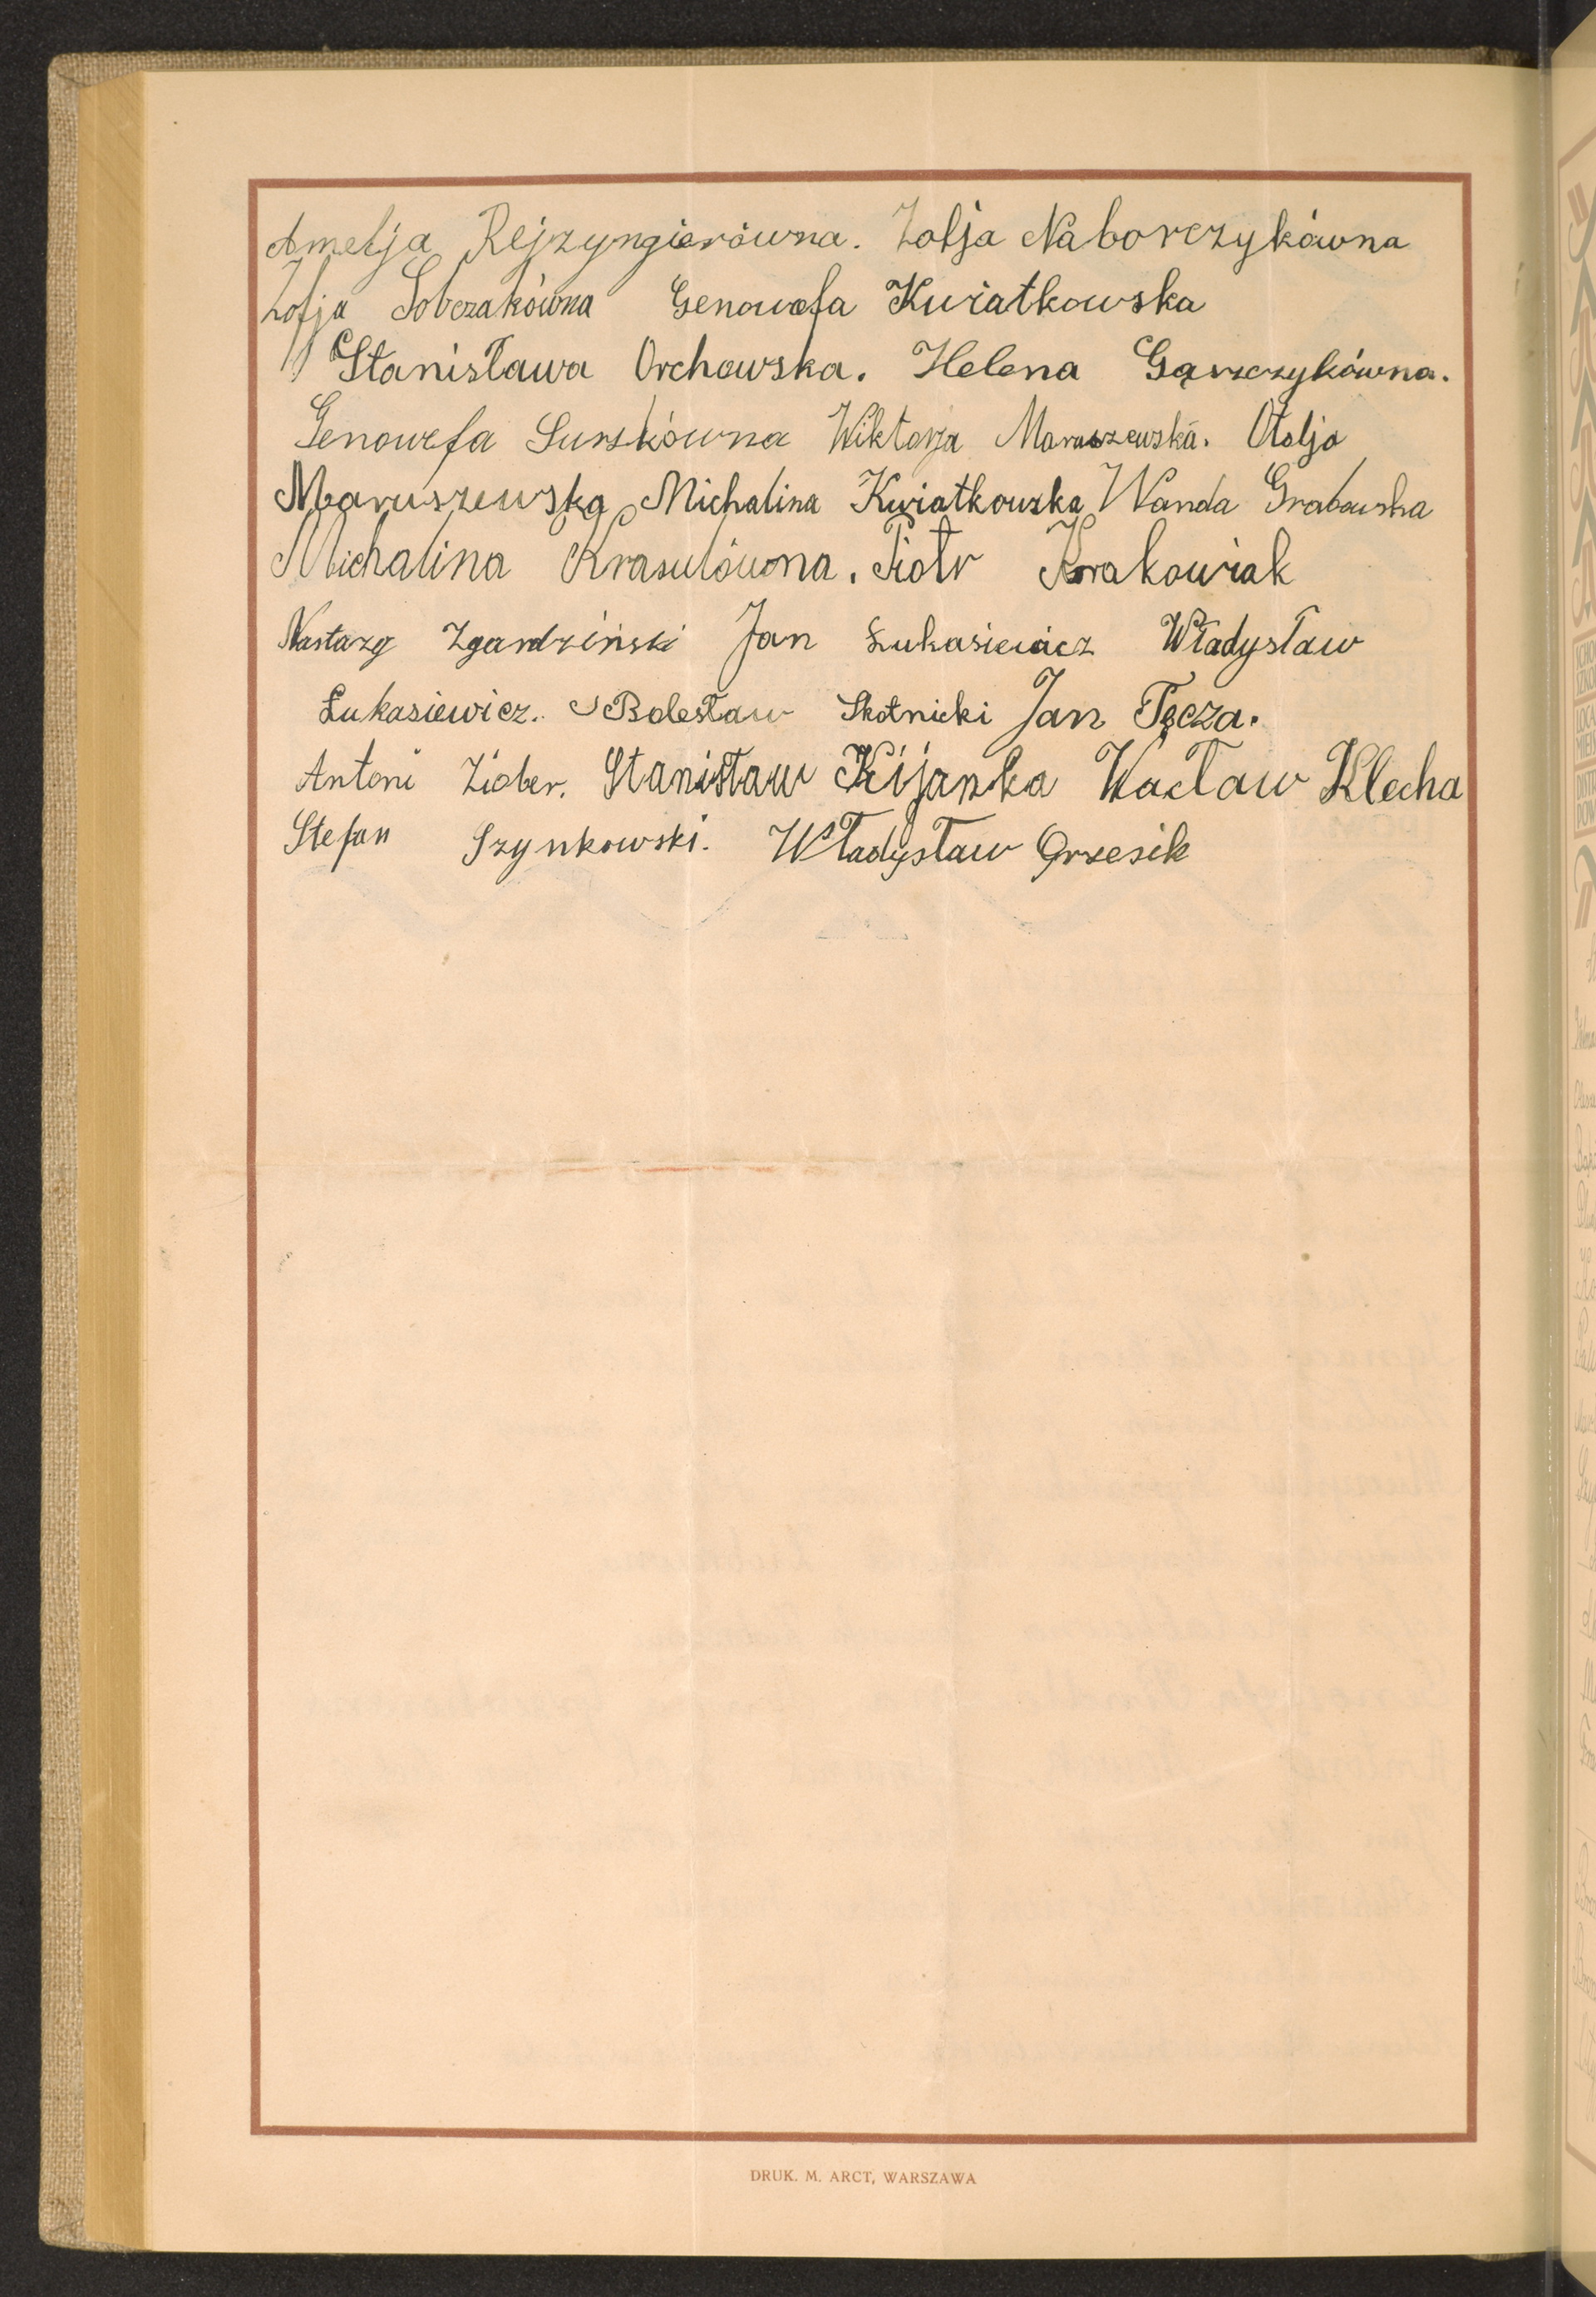 Amelja Rejzyngierówna. Zofja Naborczykówna
Zofja Sobczakówna Genowefa Kwiatkowska
Stanisława Orchowska. Helena Gąszczykówna.
Genowefa Surskówna Wiktorja Maruszewska. Otolja
Maruszewska Michalina Kwiatkowska Wanda Grabowska
Michalina Krasulówna. Piotr Krakowiak
Nastazy Zgardziński Jan Łukasiewicz Władysław
Łukasiewicz. Bolesław Skotnicki Jan Tęcza.
Antoni Ziober. Stanisław Kijanka Wacław Klecha
Stefan Szynkowski. Władysław Grzesik
DRUK. M. ARCT, WARSZAWA